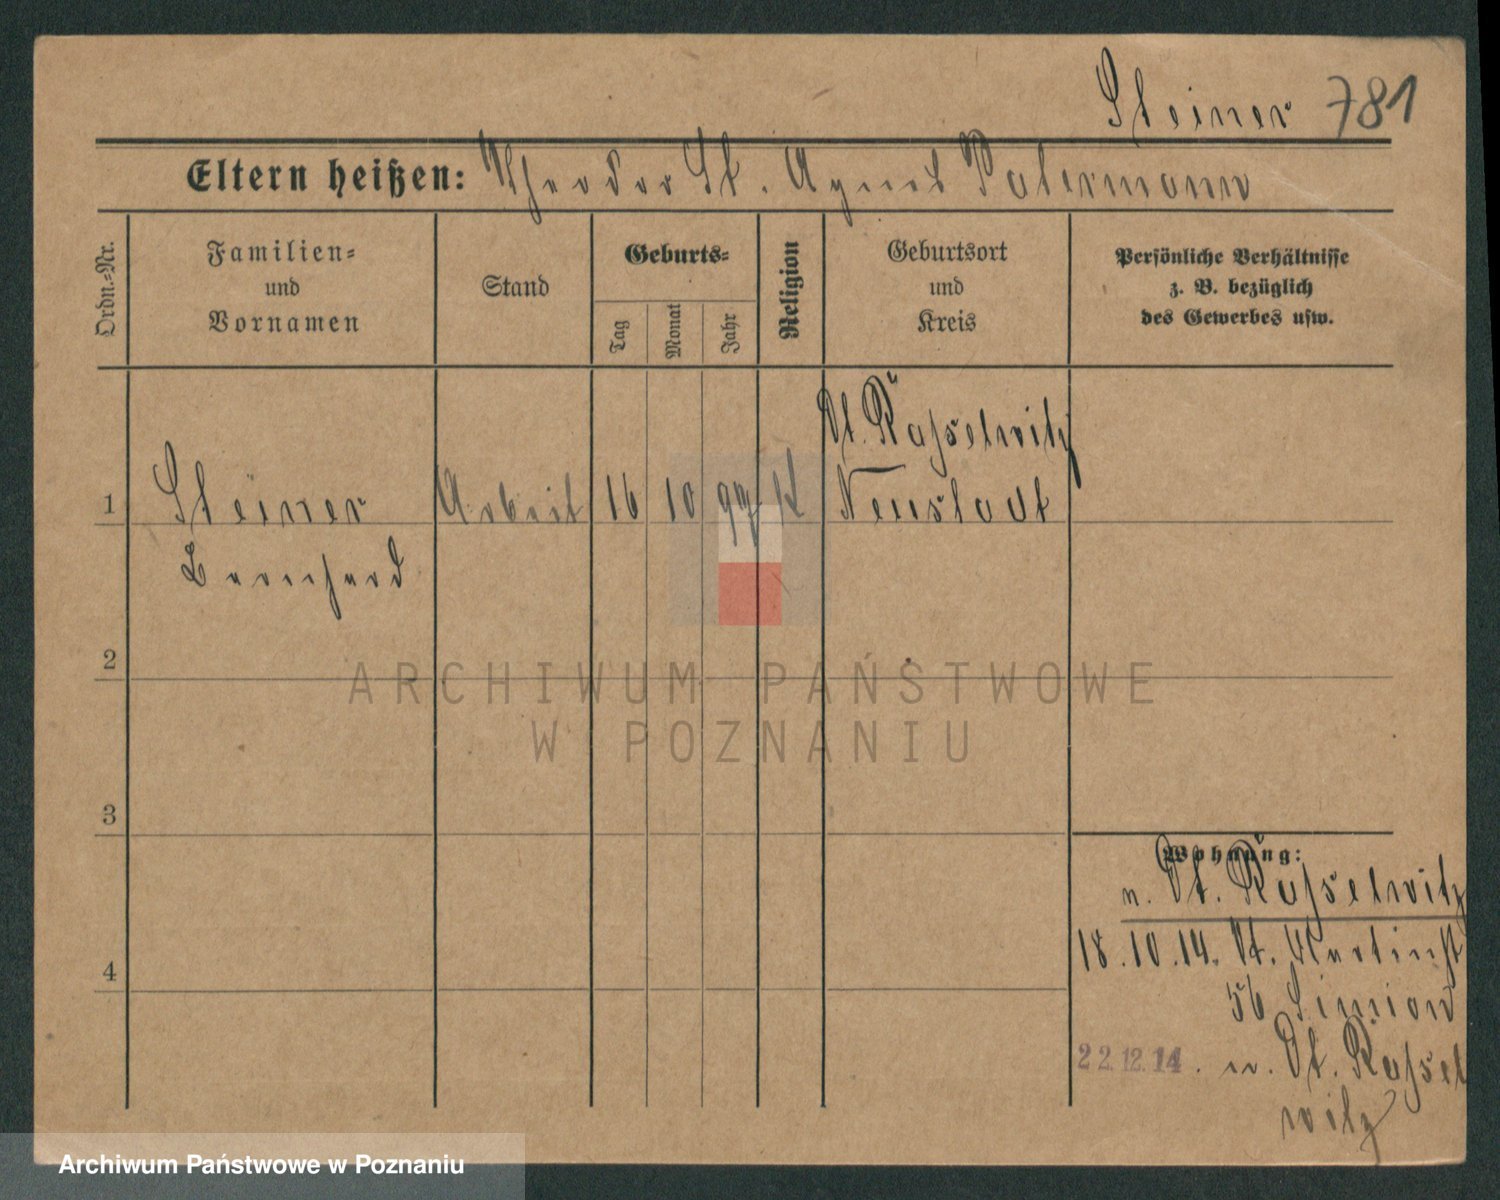 Steiner 781
Eltern heißen: Theodor St. Agnes Patermann
Ordn.-Nr.
Familien-
und
Vornamen
Stand
Geburts-
Tag
Monat
Jahr
Religion
Geburtsort
und
Kreis
Persönliche Verhältnisse
z. B. bezüglich
des Gewerbes usw.
Dt. Rasselwitz
1 Steiner Arbeit 16 10 97 K Neustadt
Bernhard
2
ARCHIWUM PAŃSTWOWE
W POZNANIU
3
Wohnung:
n. Dt. Rasselwitz
4
18.10.14. St. Martinst
56 Simion
22.12.14. n. Dt. Rassel
witz
Archiwum Państwowe w Poznaniu